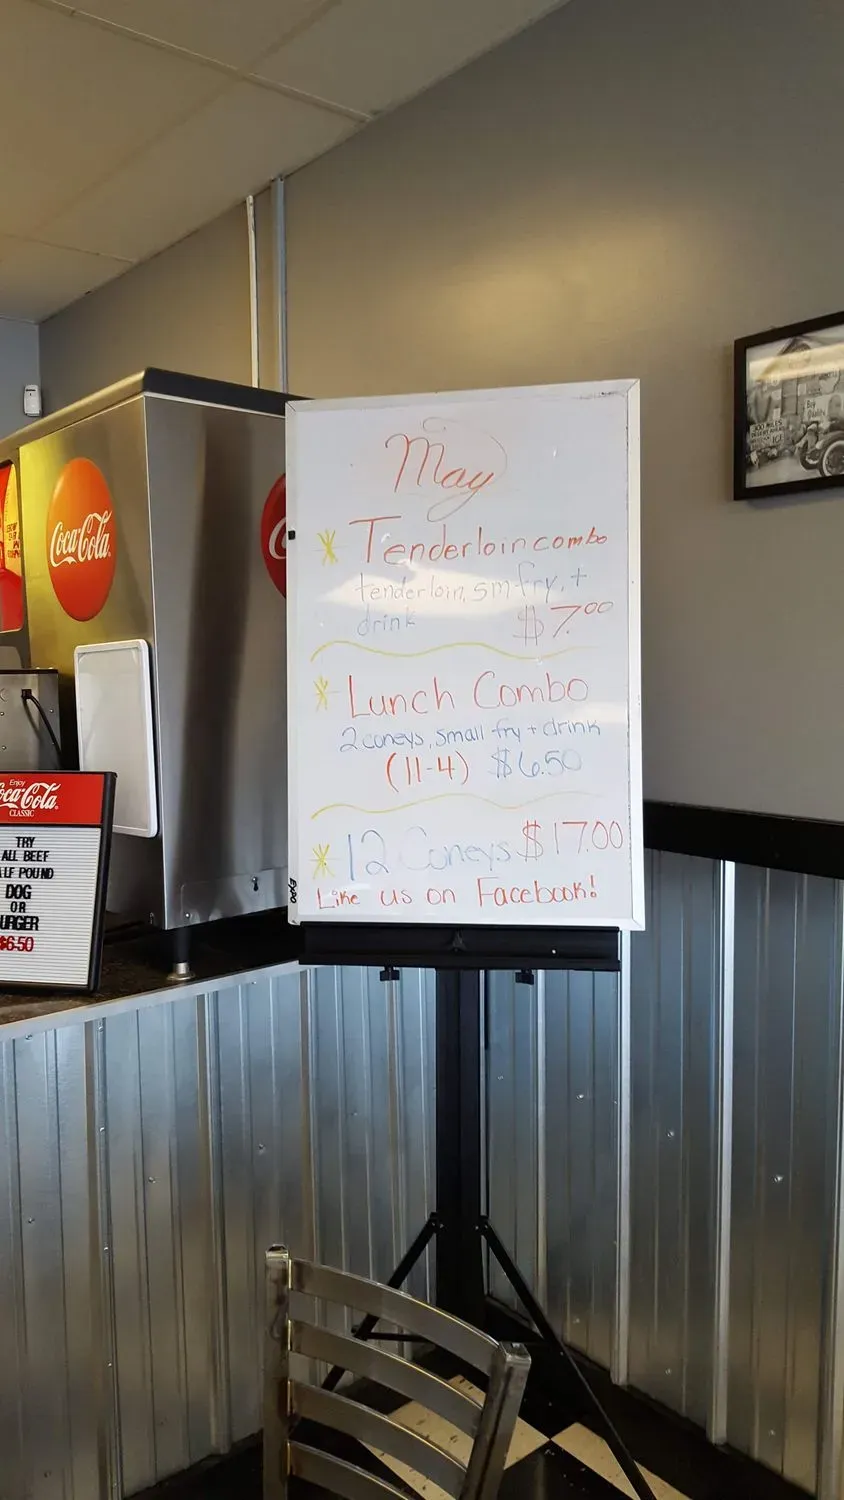 May
Tenderloin combo
tenderloin, sm fry, +
drink $7.00
Lunch Combo
2 coneys, small fry + drink
(11-4) $6.50
12 Coneys $17.00
Like us on Facebook!
Coca-Cola
Enjoy
Coca-Cola
CLASSIC
TRY
ALL BEEF
LF POUND
DOG
OR
URGER
$6.50
300 MILES
DESERT AHEAD
ICE
Big
Quality